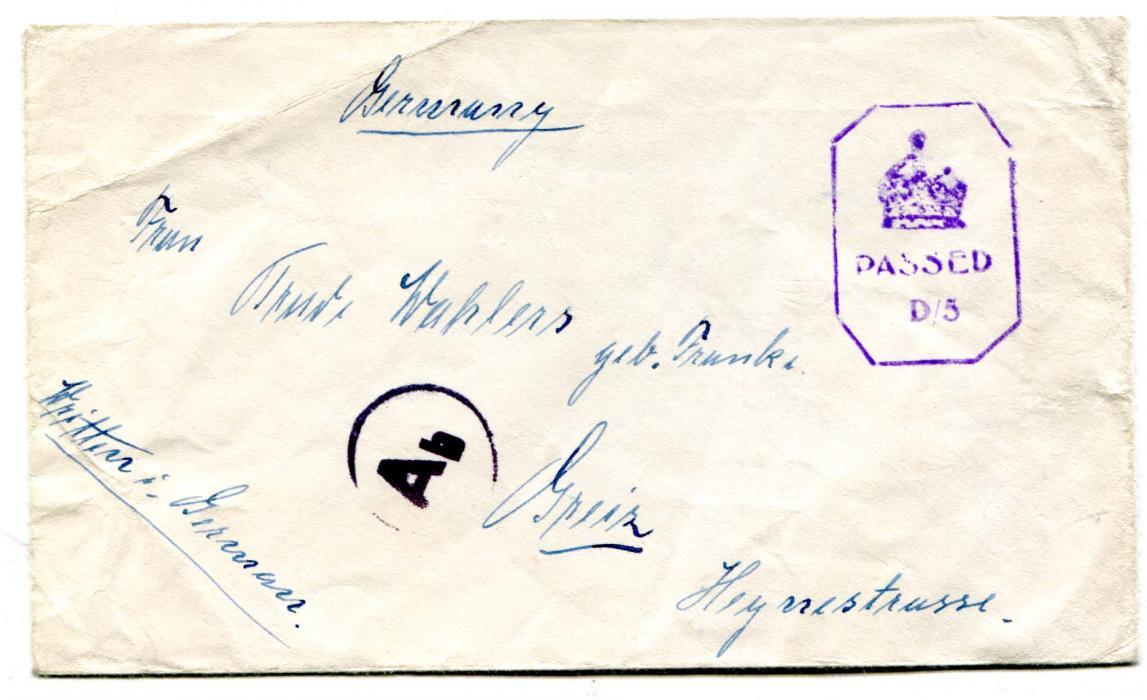 Germany
PASSED
D/5
Frau
Trude Wahlers
geb. Franke.
Ab
Greiz
Written i. German.
Heynestrasse.